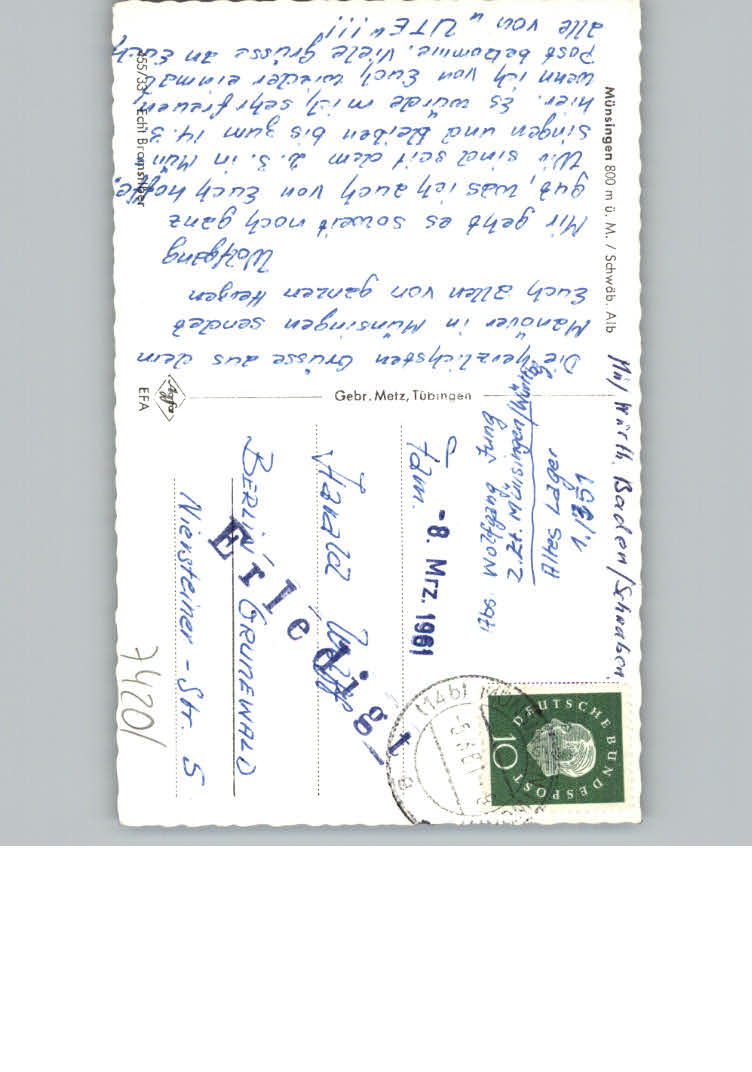 Münsingen 800 m ü. M. / Schwäb. Alb
Die herzlichsten Grüsse aus dem
Manöver in Münsingen sendet
Euch allen von ganzen Herzen
Wolfgang
Mir geht es soweit noch ganz
gut, was ich auch von Euch hoffe.
Wir sind seit dem 2. 3. in Mün
singen und bleiben bis zum 14. 3.
hier. Es würde mich sehr freuen,
wenn ich von Euch wieder einmal
Post bekomme. Viele Grüsse an Euch
alle von "UTE"!!!
455/33 Echt Bromsilber
Gebr. Metz, Tübingen
Agfa
EFA
Mü/Württ. Baden/Schwaben
Wolfgang
z.Zt. Münsingen/Württ.
Altes Lager
-8. Mrz. 1961
Fam.
Harald
BERLIN GRUNEWALD
Niersteiner-Str 5
Erledigt
7420/
(14b)
DEUTSCHE BUNDESPOST
10